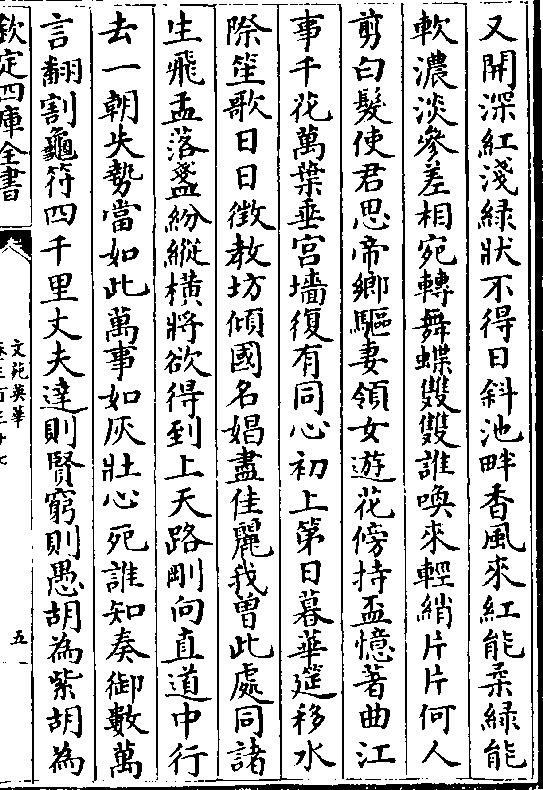 又開深紅淺緑狀不得日斜池畔香風來紅能柔緑能
軟濃淡參差相宛轉舞蝶雙雙誰喚來輕綃片片何人
剪白髮使君思帝鄉驅妻領女遊花傍持盃憶著曲江
事千花萬葉垂宮墻復有同心初上第日暮華筵移水
際笙歌日日徵教坊傾國名娼盡佳麗我曽此處同諸
生飛盂落盞紛縱橫將欲得到上天路剛向直道中行
去一朝失勢當如此萬事如灰壯心死誰知奏御數萬
言翻割龜符四千里丈夫達則賢窮則愚胡為紫胡為
欽定四庫全書
文苑英華
卷三百三十七
五